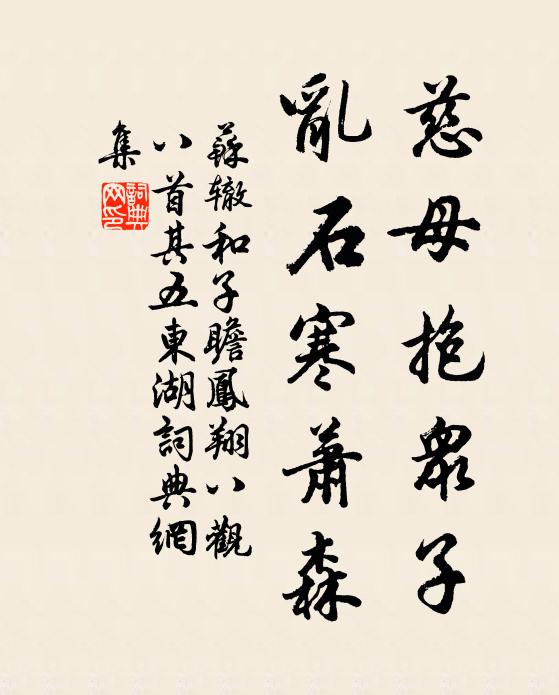 慈母抱眾子
亂石寒蕭森
蘇辙和子瞻鳳翔八觀
八首其五東湖詞典網
集
詞典
网印